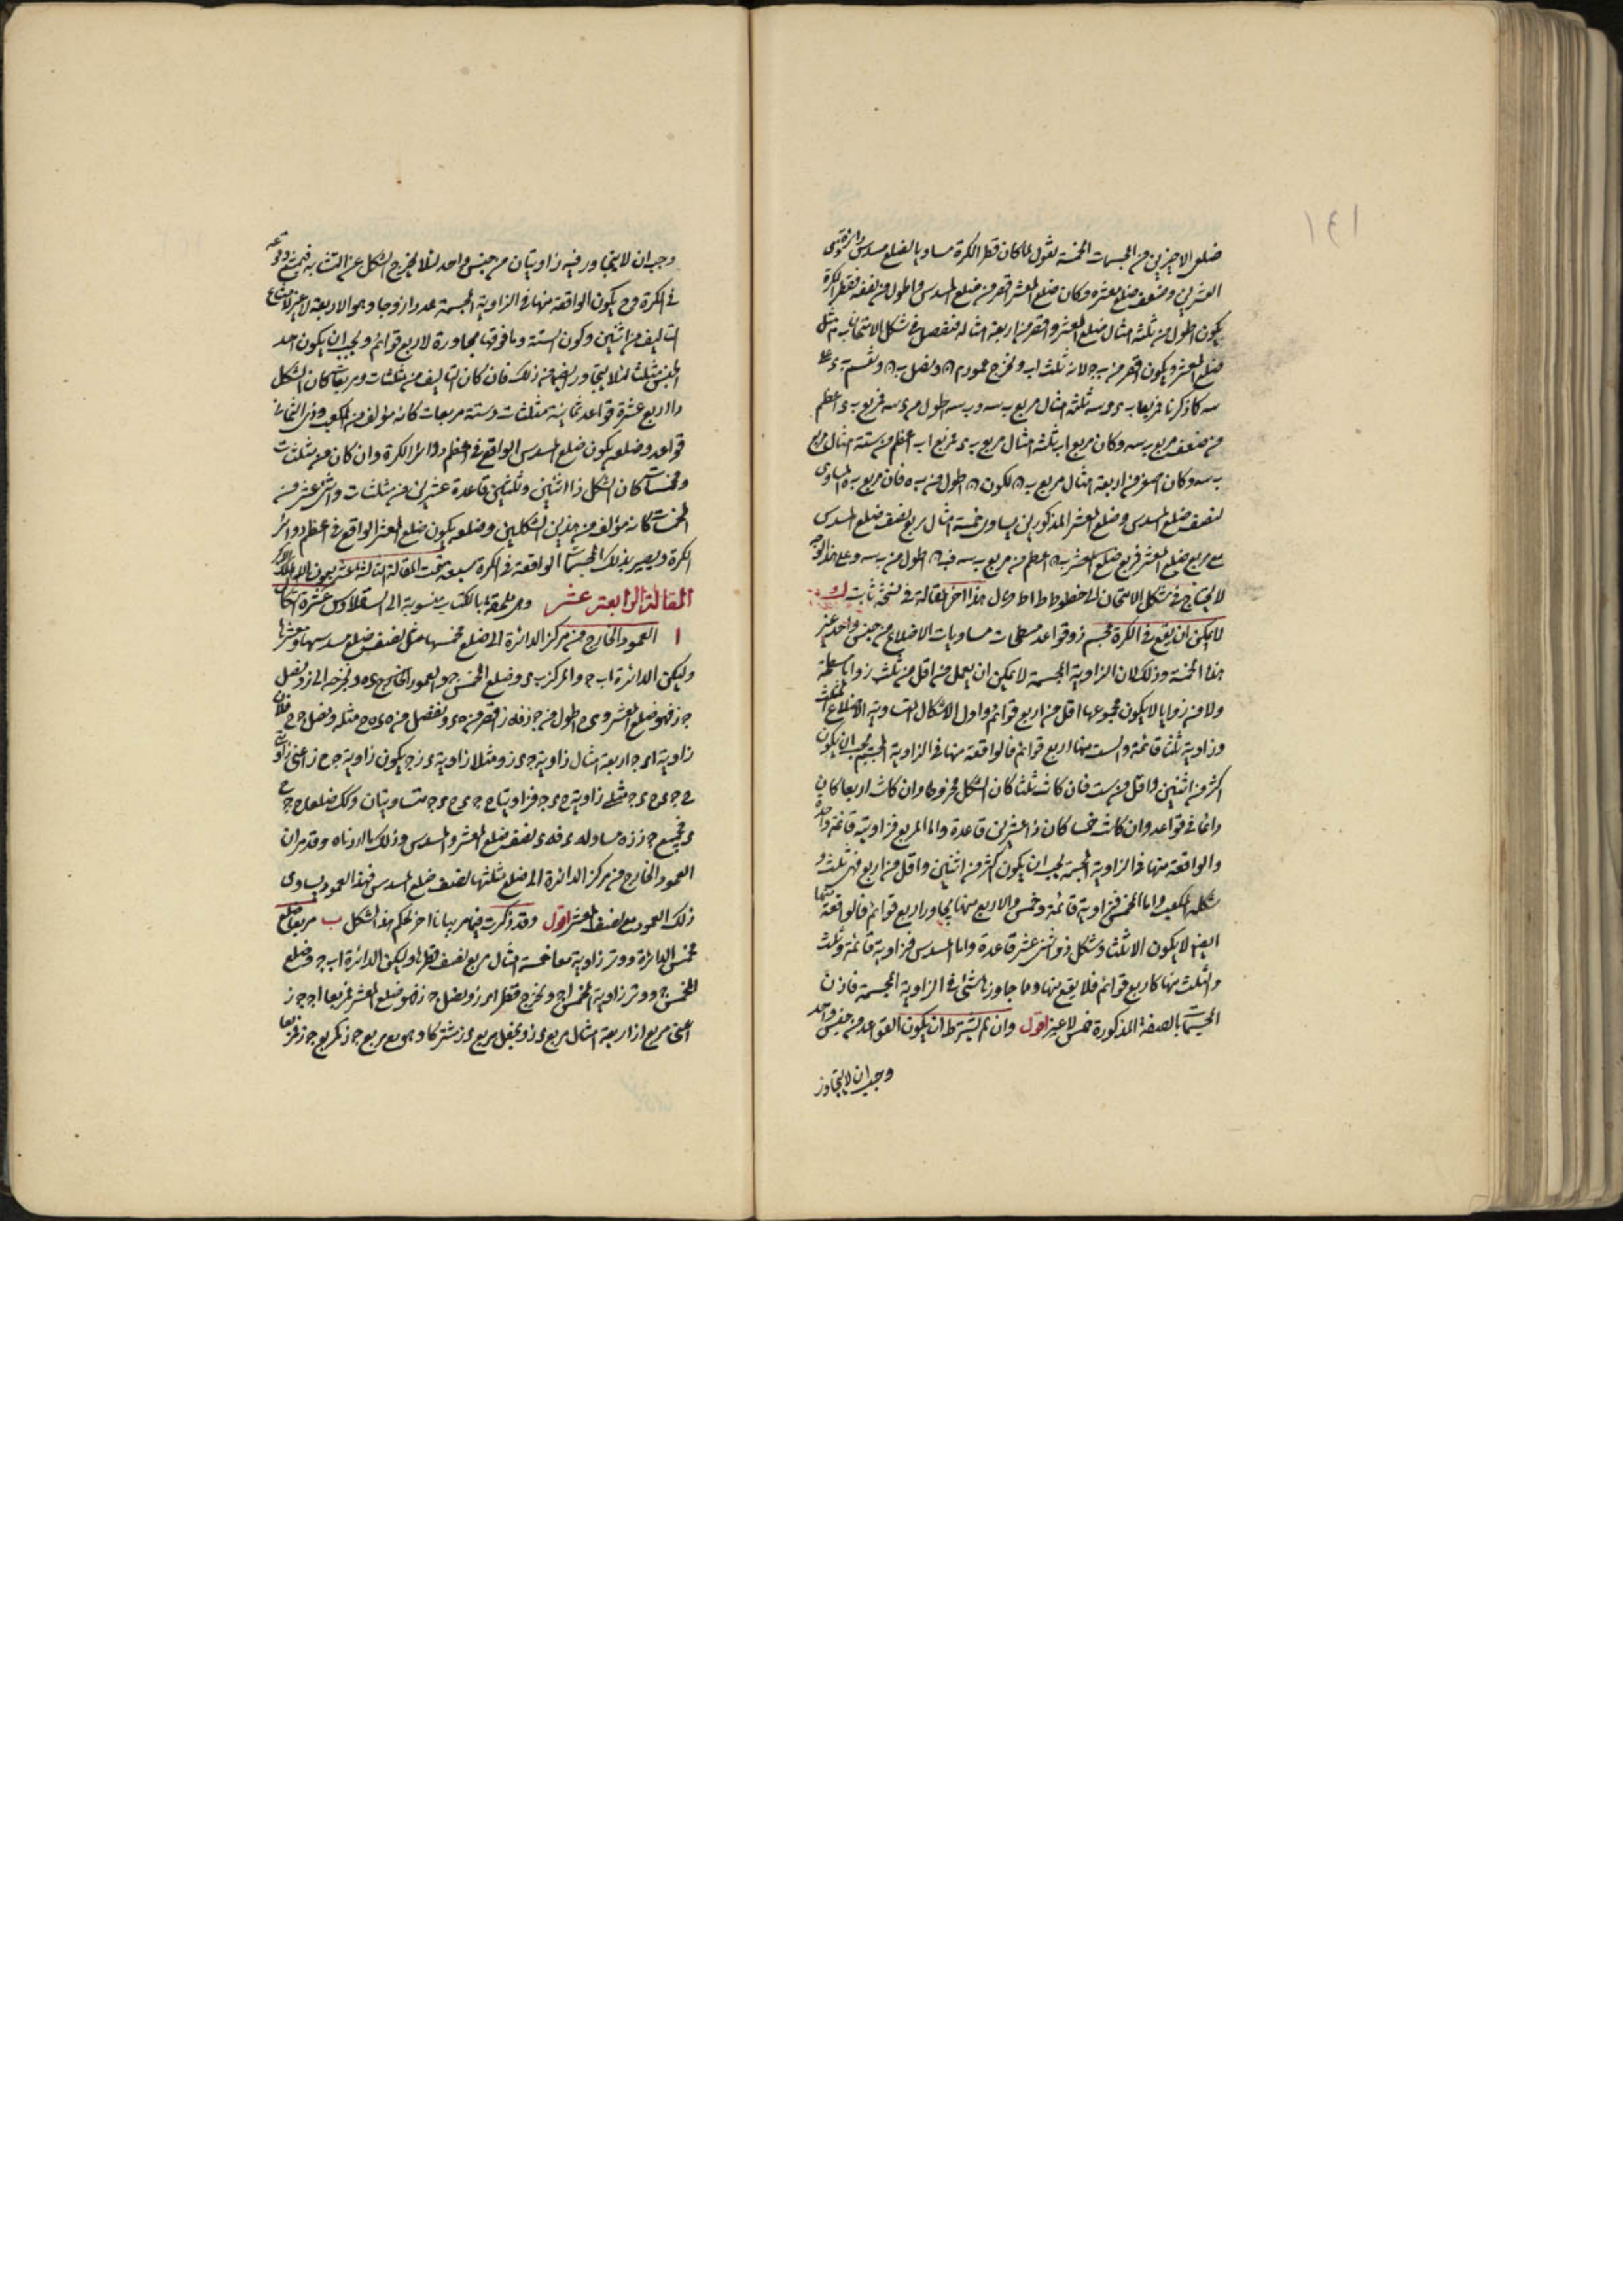 ١٤١
ضلعى الاخيرين من المجسمات الخمسة نقول لما كان قطر الكرة مساويا لضلع مسدس دائرة ذى
العشرين وضعف ضلع معشره وكان ضلع المعشر اقصر من ضلع المسدس واطول من نصفه فقطر الكرة
يكون اطول من ثلثة امثال ضلع المعشر واقصر من اربعة امثاله فنفصل فى شكل الامتحان ب م مثل
ضلع المعشر ويكون اقصر من ب ج لانه ثلث اب ونخرج عمود م ن ونصل ب ن ونقسم ب ى على
سه كما ذكرنا فمربعا ب ى ى سه ثلثة امثال مربع ب سه و ب سه اطول من ى سه فمربع ب ى اعظم
من ضعف مربع ب سه وكان مربع اب ثلثة امثال مربع ب ى فمربع اب اعظم من ستة امثال مربع
ب سه وكان اصغر من اربعة امثال مربع ب ن لكون ب ن اطول من ب ه فان مربع ب ه المساوى
لنصف ضلع المسدس وضلع المعشر المذكورين يساوى خمسة امثال مربع نصف ضلع المسدس
مع مربع ضلع المعشر فمربع ضلع المعشر ب ن اعظم من مربع ب سه ف ب ن اطول من ب سه وعلى هذا الوجه
لا يحتاج فى شكل الامتحان الى خطوط ط ا ط وقال هذا اخر المقالة فى نسخة ثابت
لا يمكن ان يقع فى الكرة مجسم ذو قواعد مسطحات متساويات الاضلاع من جنس واحد غير
هذه الخمسة وذلك لان الزاوية المجسمة لا يمكن ان يعمل من اقل من ثلث زوايا مسطحة
ولا من زوايا لا يكون مجموعها اقل من اربع قوائم واول الاشكال المتساوية الاضلاع المثلث
وزاويته ثلثا قائمة والست منها اربع قوائم فالواقعة منها فى الزاوية المجسمة يجب ان يكون
اكثر من اثنين واقل من ست فان كانت ثلثا كان الشكل مخروطا وان كانت اربعا كان
ذا ثمانى قواعد وان كانت خمسا كان ذا عشرين قاعدة واما المربع فزاويته قائمة واحدة
والواقعة منها فى الزاوية المجسمة يجب ان يكون اكثر من اثنين واقل من اربع فهى ثلث و
شكله المكعب واما المخمس فزاويته قائمة وخمس والاربع منها يجاوز اربع قوائم فالواقعة منها
ايضا لا يكون الا ثلثا وشكل ذو اثنى عشر قاعدة واما المسدس فزاويته قائمة وثلث
والثلث منها كاربع قوائم فلا يقع منها وما جاوزها شئ فى الزاوية المجسمة فاذن
المجسمات بالصفة المذكورة خمس لا غير اقول وان لم يشترط ان يكون القواعد من جنس واحد
وجب ان لا يتجاوز
وجب ان لا يتجاور فيه زاويتان من جنس واحد لئلا يخرج الشكل عن التشابه فيمتنع وقوعه
فى الكرة وح يكون الواقعة منها فى الزاوية المجسمة عددا زوجا وهو الاربعة لا غير لامتناع
التاليف من اثنين وكون الستة وما فوقها مجاوزة لاربع قوائم ويجب ان يكون احد
الجنس مثلث لئلا يتجاوز ايضا من ذلك فان كان التاليف من مثلثات ومربعات كان الشكل
ذا اربع عشرة قواعد ثمانية مثلثات وستة مربعات كانه مؤلف من المكعب وذى الثمانى
قواعد وضلعه يكون ضلع المسدس الواقع فى اعظم دوائر الكرة وان كان من مثلثات
ومخمسات كان الشكل ذا اثنين وثلثين قاعدة عشرين من مثلثات واثنى عشر من
المخمسات كانه مؤلف من هذين الشكلين وضلعه يكون ضلع المعشر الواقع فى اعظم دوائر
الكرة ويصير بذلك المجسمات الواقعة فى الكرة سبعة تمت المقالة الثالثة عشر بعون الله الملك الاكبر
المقالة الرابعة عشر وهى ملحقة بالكتاب منسوبة الى ابسقلاوس عشرة اشكال
ا العمود الخارج من مركز الدائرة الى ضلع مخمسها مثل نصف ضلع مسدسها ومعشرها
وليكن الدائرة اب ج والمركز ى وضلع المخمس ب ج والعمود الخارج ى ه ونخرجه الى ز ونصل
ج ز فهو ضلع المعشر و ى ج اطول من ج ز ف ه ز اقصر من ه ى ونفصل من ه ى ه ح مثله ونصل ج ح فلان
زاوية ا ى ج اربعة امثال زاوية ج ى ز ومثلا زاوية ى ز ج يكون زاوية ج ح ز اعنى زاويتى
ح ج ى ح ى ج مثلى زاوية ح ى ج فزاويتا ح ج ى ح ى ج متساويتان وكذلك ضلعا ح ج ح
ى فجميع ج ز ز ه مساو ل ه ى ف ه ى نصف ضلع المعشر والمسدس وذلك ما اردناه وقد مر ان
العمود الخارج من مركز الدائرة الى ضلع مثلثها نصف ضلع المسدس فهذا العمود يساوى
ذلك العمود مع نصف المعشر اقول وقد ذكرت فيما مر بيانا اخر لحكم هذا الشكل ب مربعا ضلع
مخمس الدائرة ووتر زاويته معا خمسة امثال مربع نصف قطرها وليكن الدائرة اب ج وضلع
المخمس ب ج ووتر زاوية المخمس ا ج ونخرج قطر ا ى ز ونصل ج ز فهو ضلع المعشر فمربعا ا ج ج ز
اعنى مربع ا ز اربعة امثال مربع ى ز ونجعل مربع ى ز مشتركا وهو مع مربع ج ز كمربع ب ج فمربعا